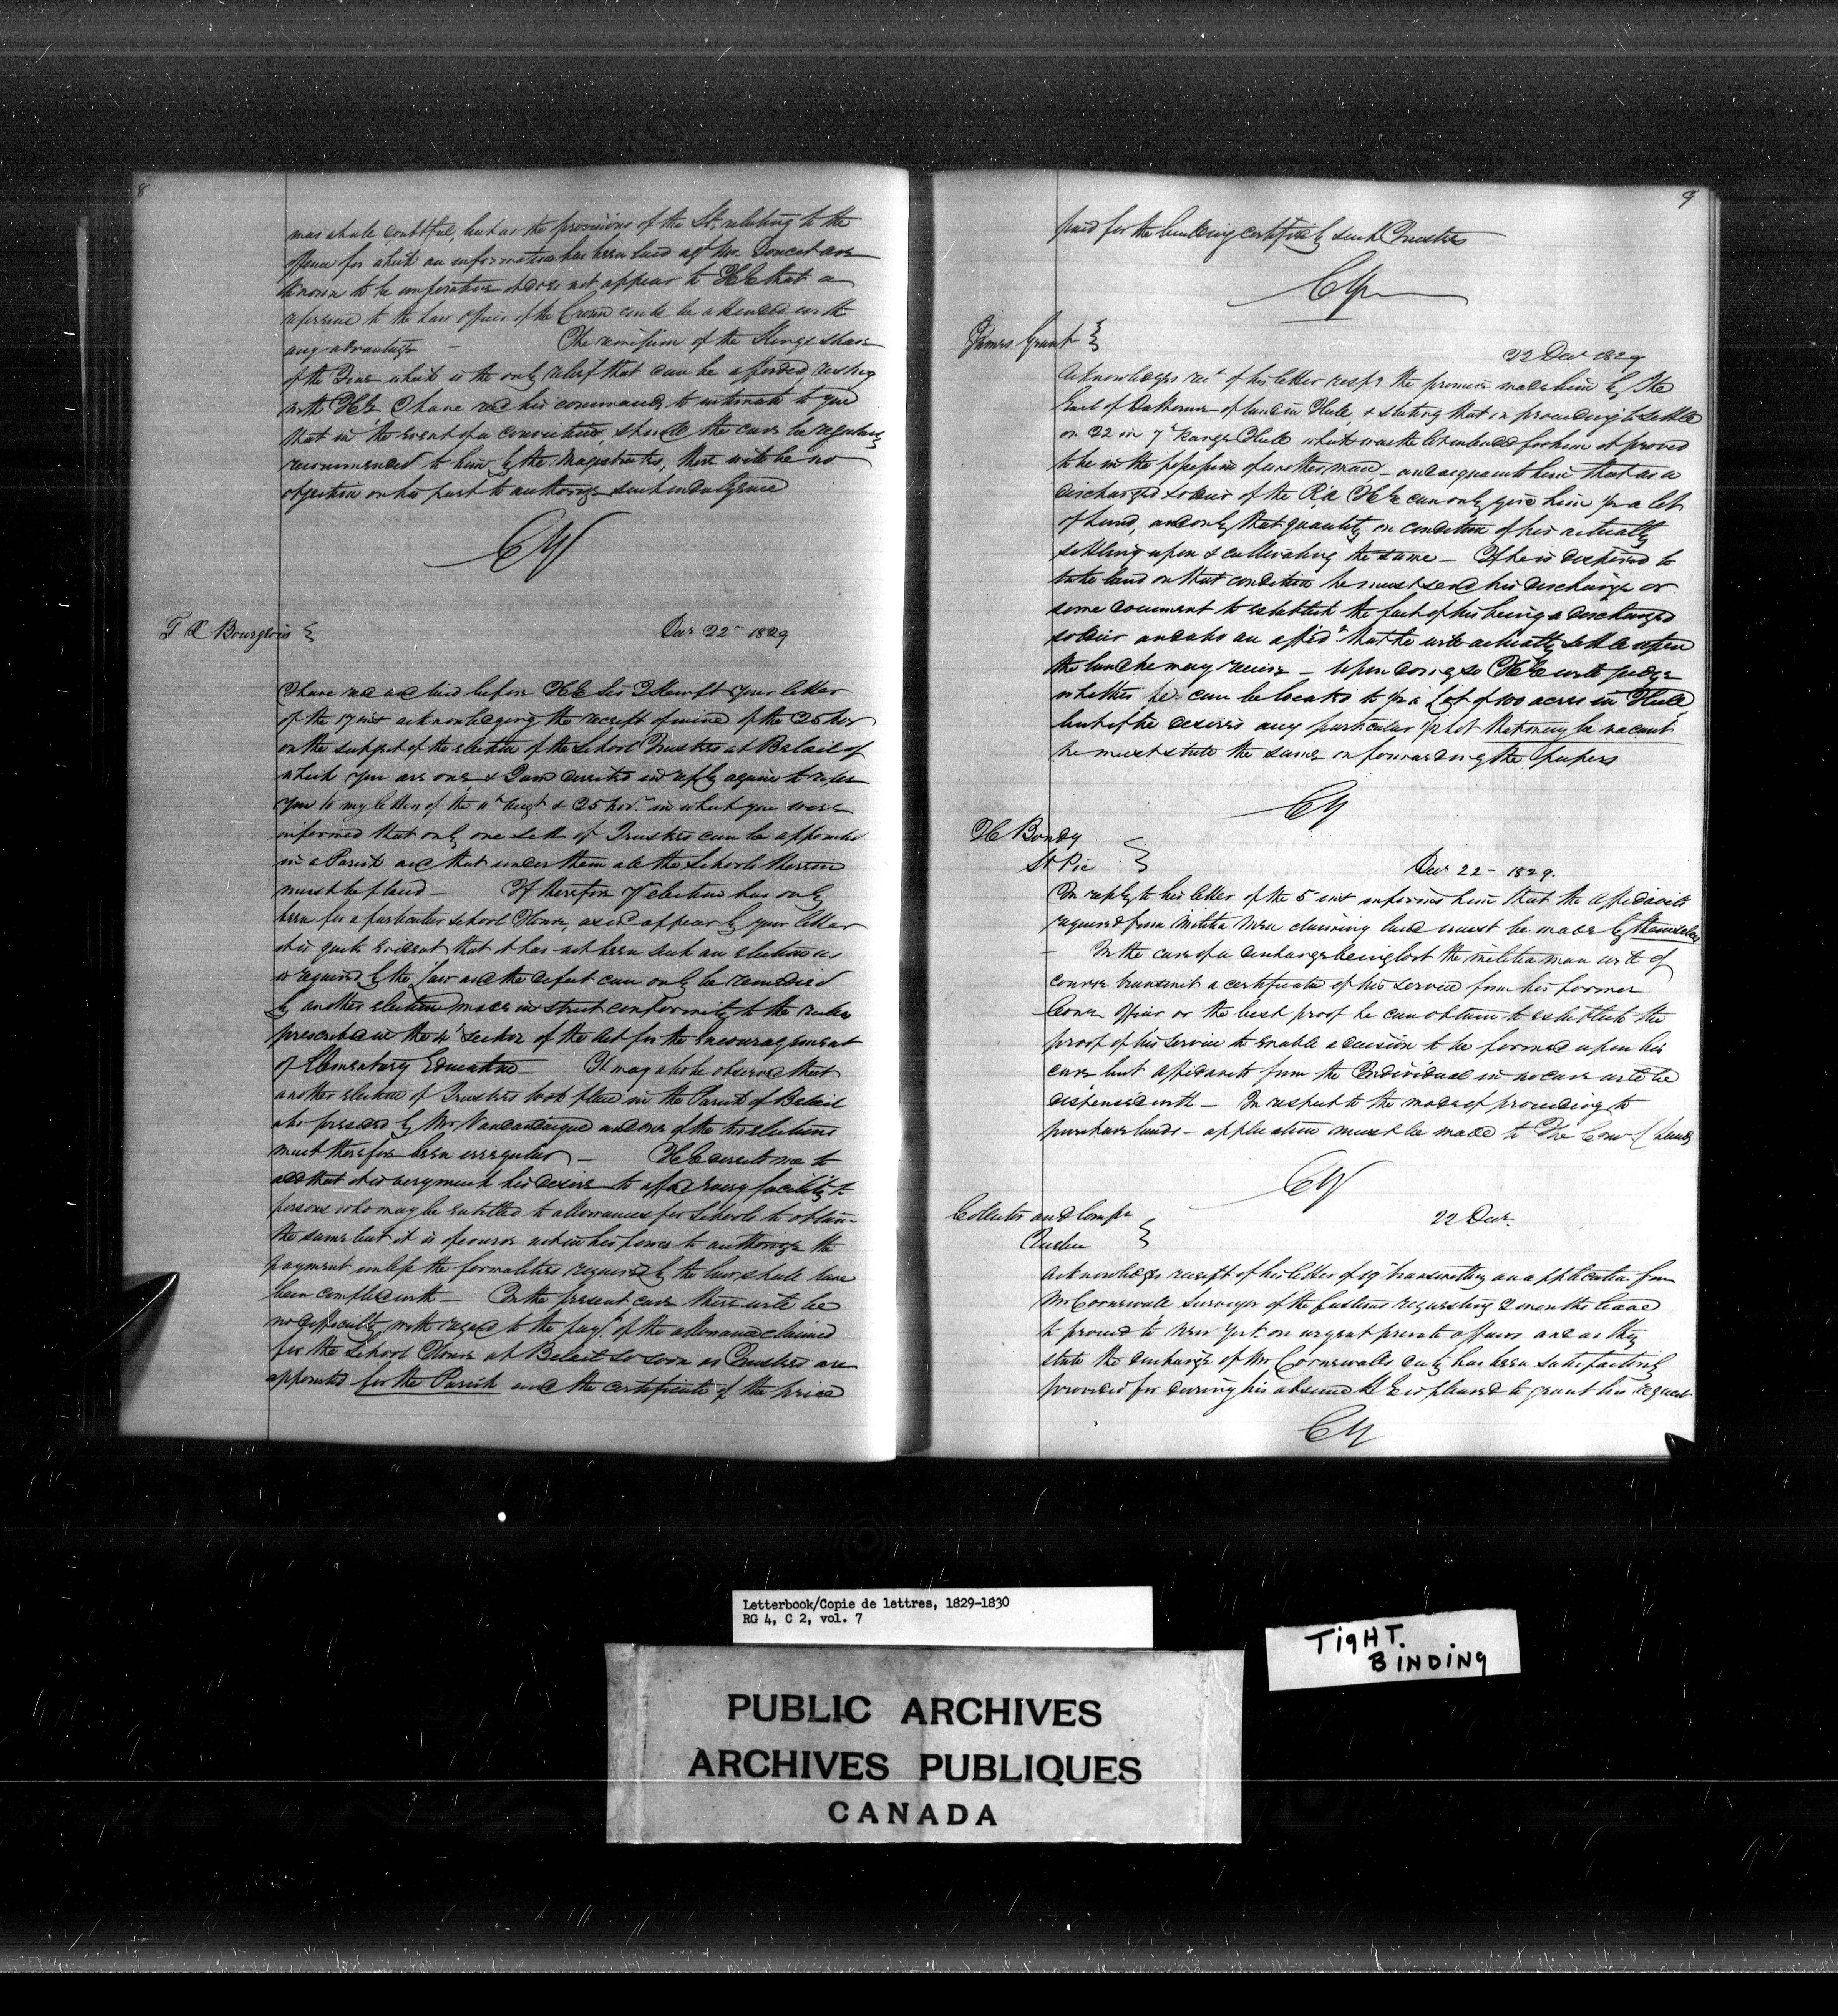 8
was at all doubtful, but as the provisions of the St. relating to the
offence for which an information has been laid agt Mr Doucet are
known to be imperative it does not appear to HE that a
reference to the Law Officers of the Crown could be attended with
any advantage — The remission of the Kings share
of the Fine which is the only relief that can be afforded, resting
with HE I have recd his commands to intimate to you
that in the event of a conviction, should the case be regularly
recommended to him by the Magistrates, there will be no
objection on his part to authorize such indulgence
CY
Bourgeois
Decr 22 1829
I have recd and laid before HE Sir J Kempt your letter
of the 17 inst acknowledging the receipt of mine of the 25 Nov
on the subject of the election of the School Trustees at Belœil of
which you are one, & I am directed in reply again to refer
you to my letters of the 11 Augt & 25 Nov. in which you were
informed that only one sett of Trustees can be appointed
in a Parish and that under them all the Schools therein
must be placed — If therefore yr election has only
been for a particular School House, as it appears by your letter
it is quite evident that it has not been such an election as
is required by the Law and the defect can only be remedied
by another election made in strict conformity to the rules
prescribed in the 4 section of the Act for the Encouragement
of Elementary Education — It may also be observed that
another election of Trustees took place in the Parish of Belœil
also presided by Mr Vandandaigue and one of the two elections
must therefore been irregular — HE directs me to
add that it is very much his desire to afford every facility to
persons who may be entitled to allowances for Schools to obtain
the same but it is of course not in his power to authorize the
payment unless the formalities required by the law shall have
been complied with — In the present case there will be
no difficulty with regard to the payt. of the allowance claimed
for the School House at Belœil so soon as Trustees are
appointed for the Parish and the certificate of the price
9
paid for the building certified by such Trustees
CY
James Grant
22 Decr 1829
Acknowledges rect of his letter respg the promise made him by the
Earl of Dalhousie of land in Hull, & stating that in proceeding to settle
on 22 in 7 Range Hull which was the lot intended for him it proved
to be in the possession of another man — and acquaints him that as a
discharged soldier of the RA HE can only give him ½ a lot
of Land, and only that quantity on condition of his actually
settling upon & cultivating the same — If he is disposed to
take land on that condition he must send his discharge or
some document to establish the fact of his being a discharged
soldier and also an affidt that he will actually settle upon
the land he may receive — upon doing so HE will judge
whether he can be located to ½ a Lot of 100 acres in Hull,
but if he desires any particular ½ lot that may be vacant
he must state the same on forwarding the papers
CY
H Bondy
St Pie
Decr 22 1829.
In reply to his letter of the 5 inst informs him that the affidavits
required from Militia Men claiming land must be made by themselves
— In the case of a discharge being lost the militia man will of
course transmit a certificate of his service from his former
Comg Officer or the best proof he can obtain to establish the
proof of his service to enable a decision to be formed upon his
case but affidavits from the Individual in no case will be
dispensed with — In respect to the mode of proceeding to
purchase lands — application must be made to the Comr C Lands
CY
Collector and Compr
Quebec
22 Decr.
Acknowledges receipt of his letter of 19 transmitting an application from
Mr Cornwall Surveyor of the Customs requesting 2 months leave
to proceed to New York on urgent private affairs and as they
state the discharge of Mr Cornwalls duty has been satisfactorily
provided for during his absence HE is pleased to grant his request
CY
Letterbook/Copie de lettres, 1829-1830
RG 4, C 2, vol. 7
TIGHT.
BINDING
PUBLIC ARCHIVES
ARCHIVES PUBLIQUES
CANADA